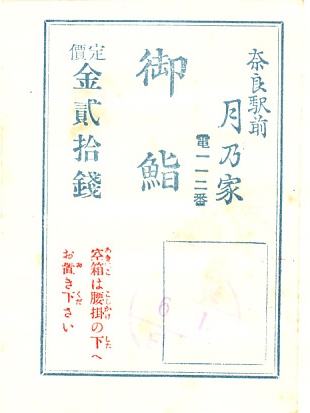 奈良駅前
月乃家
電一一二番
御鮨
定價
金貳拾錢
空箱は腰掛の下へ
お置き下さい